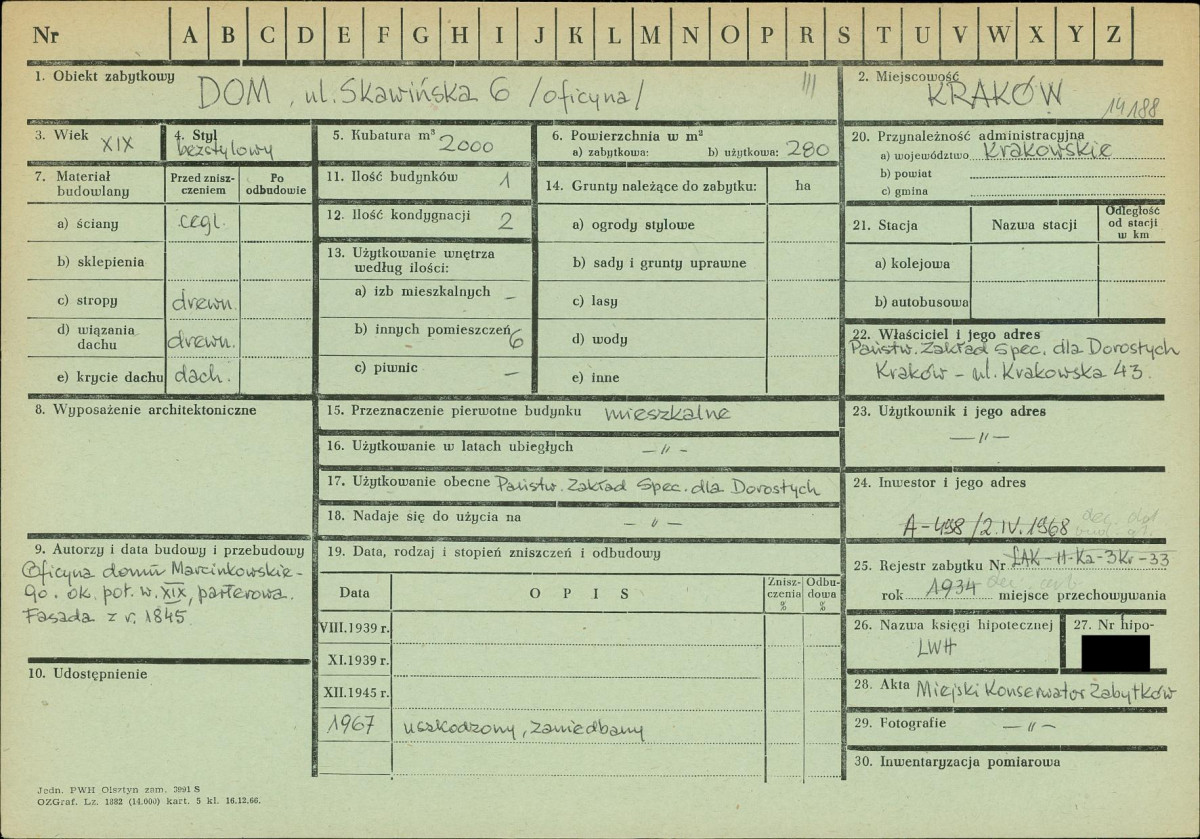 Nr A B C D E F G H I J K L M N O P R S T U V W X Y Z
1. Obiekt zabytkowy DOM, ul. Skawińska 6 /oficyna/ III
2. Miejscowość KRAKÓW
14188
3. Wiek XIX
4. Styl bezstylowy
5. Kubatura m³ 2000
6. Powierzchnia w m²
a) zabytkowa: b) użytkowa: 280
7. Materiał budowlany
Przed zniszczeniem
Po odbudowie
a) ściany cegl.
b) sklepienia
c) stropy drewn.
d) wiązania dachu drewn.
e) krycie dachu dach.
11. Ilość budynków 1
12. Ilość kondygnacji 2
13. Użytkowanie wnętrza
według ilości:
a) izb mieszkalnych –
b) innych pomieszczeń 6
c) piwnic –
14. Grunty należące do zabytku: ha
a) ogrody stylowe
b) sady i grunty uprawne
c) lasy
d) wody
e) inne
20. Przynależność administracyjna
a) województwo Krakowskie
b) powiat
c) gmina
21. Stacja Nazwa stacji
Odległość
od stacji
w km
a) kolejowa
b) autobusowa
22. Właściciel i jego adres
Państw. Zakład Spec. dla Dorosłych
Kraków – ul. Krakowska 43.
8. Wyposażenie architektoniczne
15. Przeznaczenie pierwotne budynku mieszkalne
16. Użytkowanie w latach ubiegłych –"–
17. Użytkowanie obecne Państw. Zakład Spec. dla Dorosłych
18. Nadaje się do użycia na –"–
23. Użytkownik i jego adres
–"–
24. Inwestor i jego adres
A-498/2.IV.1968
9. Autorzy i data budowy i przebudowy
Oficyna domu Marcinkowskie-
go. ok. poł. w. XIX, parterowa.
Fasada z r. 1845
10. Udostępnienie
19. Data, rodzaj i stopień zniszczeń i odbudowy
Data O P I S
Znisz-
czenia
%
Odbu-
dowa
%
VIII.1939 r.
XI.1939 r.
XII.1945 r.
1967 uszkodzony, zaniedbany
25. Rejestr zabytku Nr ŁAK-II-Ka-3Kr-33
rok 1934 miejsce przechowywania
26. Nazwa księgi hipotecznej
LWH
27. Nr hipo-
28. Akta Miejski Konserwator Zabytków
29. Fotografie –"–
30. Inwentaryzacja pomiarowa
Jedn. PWH Olsztyn zam. 3991 S
OZGraf. Lz. 1882 (14.000) kart. 5 kl. 16.12.66.